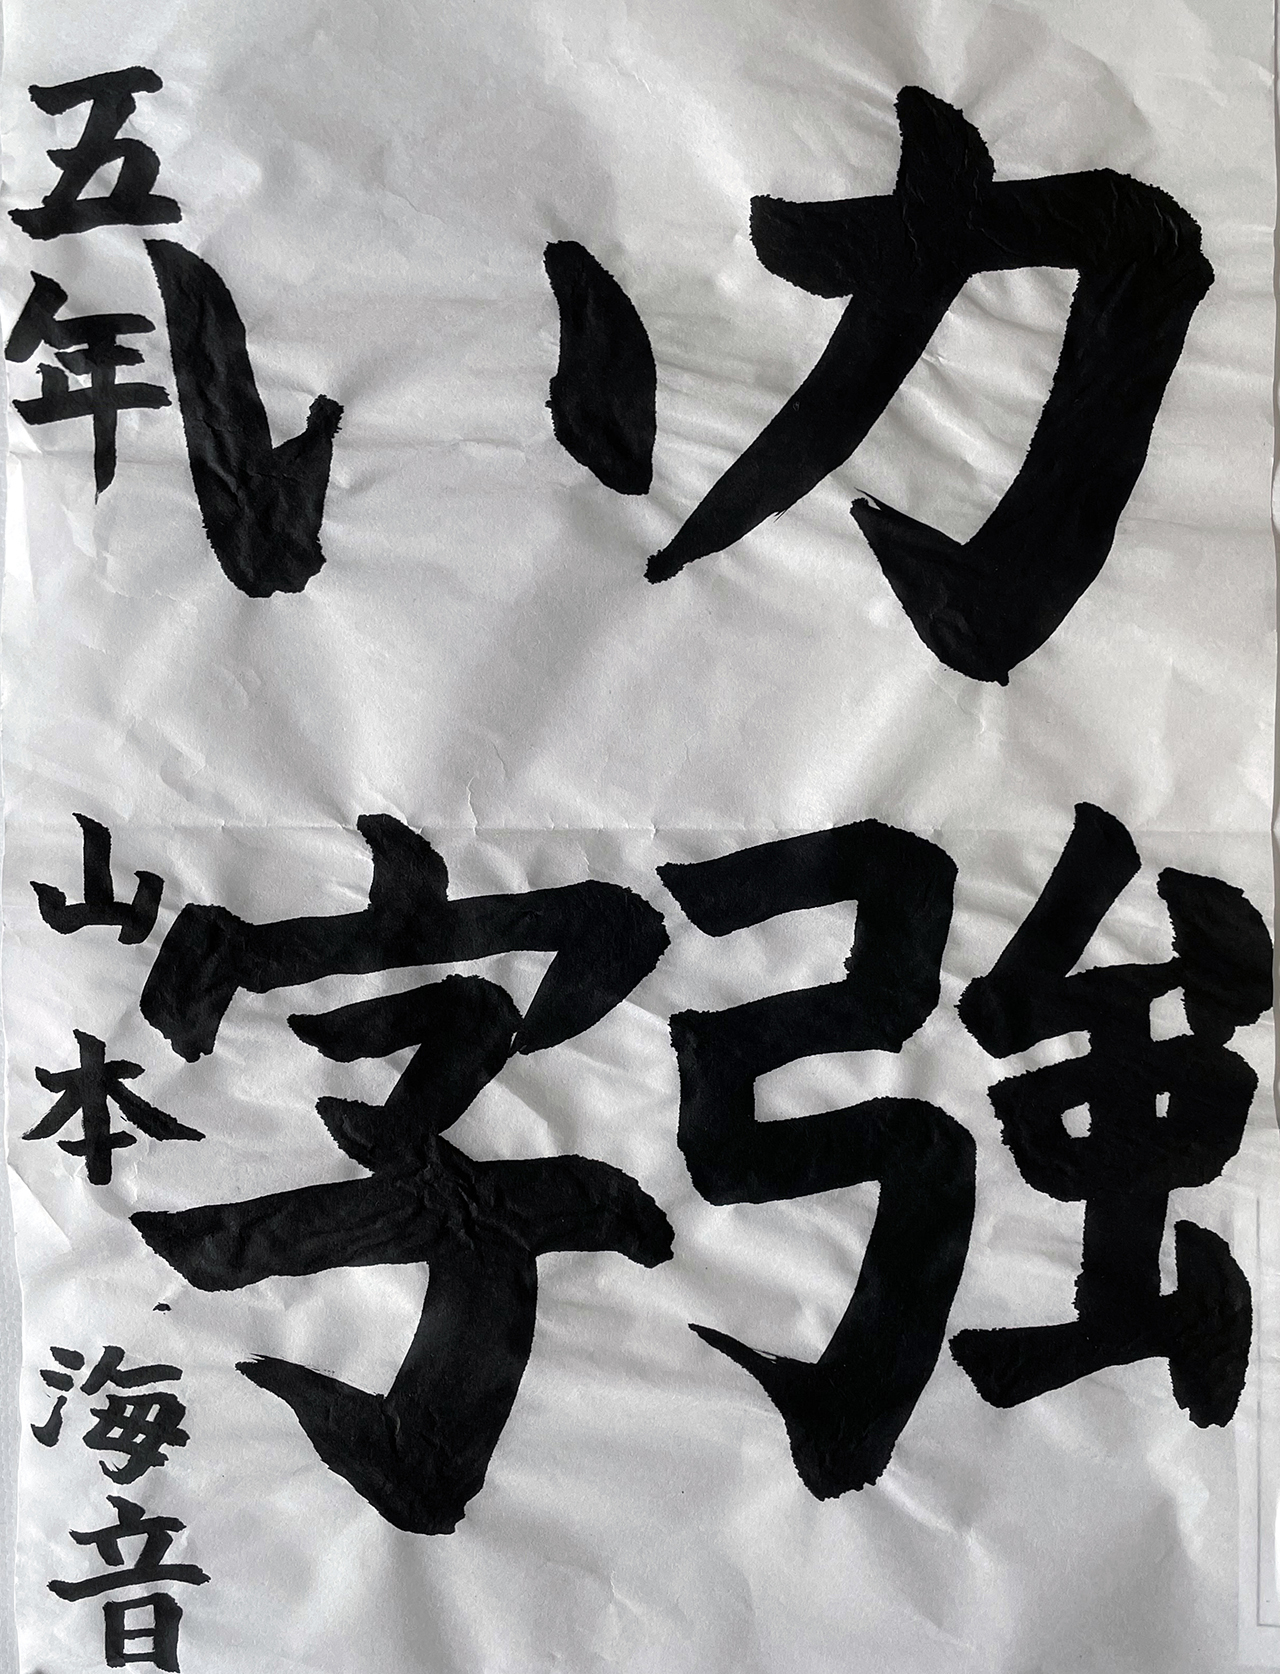 力強
い字
五年 山本 海音